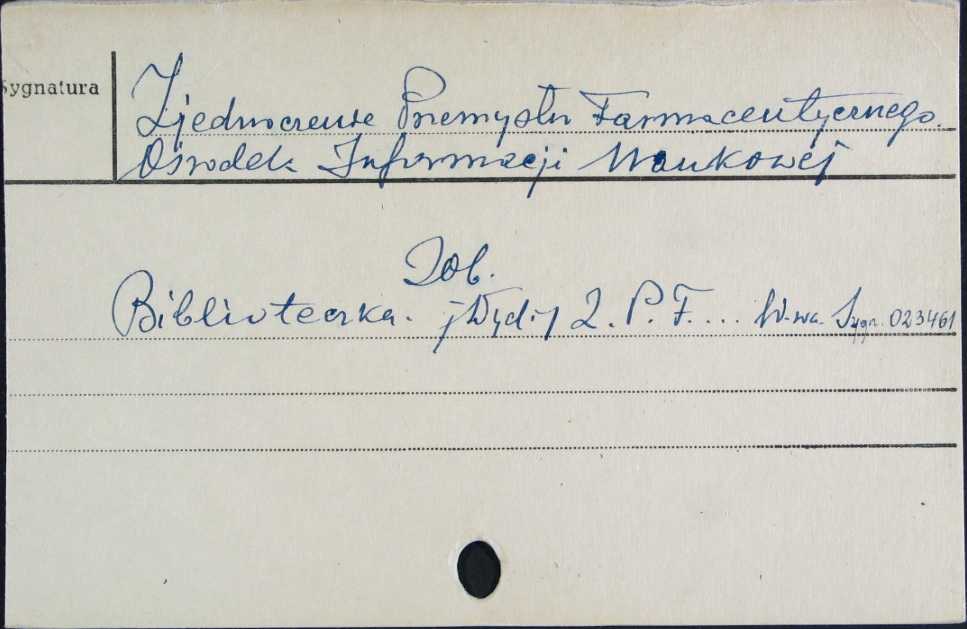 Sygnatura
Zjednoczenie Przemysłu Farmaceutycznego.
Ośrodek Informacji Naukowej
Zob.
Biblioteczka. /Wyd:/ Z. P. F. ... W-wa. Sygn. 023461